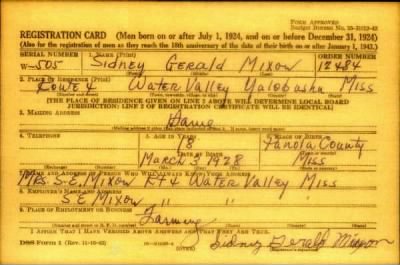 FORM APPROVED
REGISTRATION CARD (Men born on or after July 1, 1924, and on or before December 31, 1924)
(Also for the registration of men as they reach the 18th anniversary of the date of their birth on or after January 1, 1943.)
SERIAL NUMBER 1. NAME (Print) ORDER NUMBER
W-505 Sidney Gerald Mixon 12484
(First) (Middle) (Last)
2. PLACE OF RESIDENCE (Print)
Water Valley Yalobusha Miss
[THE PLACE OF RESIDENCE GIVEN ON LINE 2 ABOVE WILL DETERMINE LOCAL BOARD
JURISDICTION; LINE 2 OF REGISTRATION CERTIFICATE WILL BE IDENTICAL]
3. MAILING ADDRESS
Same
4. TELEPHONE 5. AGE IN YEARS 6. PLACE OF BIRTH
18 Panola County
DATE OF BIRTH
March 3 Miss
7. NAME AND ADDRESS OF PERSON WHO WILL ALWAYS KNOW YOUR ADDRESS
Mrs. S.E. Mixon Rt 4 Water Valley Miss
8. EMPLOYER'S NAME AND ADDRESS
S E Mixon " " "
9. PLACE OF EMPLOYMENT OR BUSINESS
Farming
I AFFIRM THAT I HAVE VERIFIED ABOVE ANSWERS AND THAT THEY ARE TRUE.
DSS Form 1 (OVER) Sidney Gerald Mixon